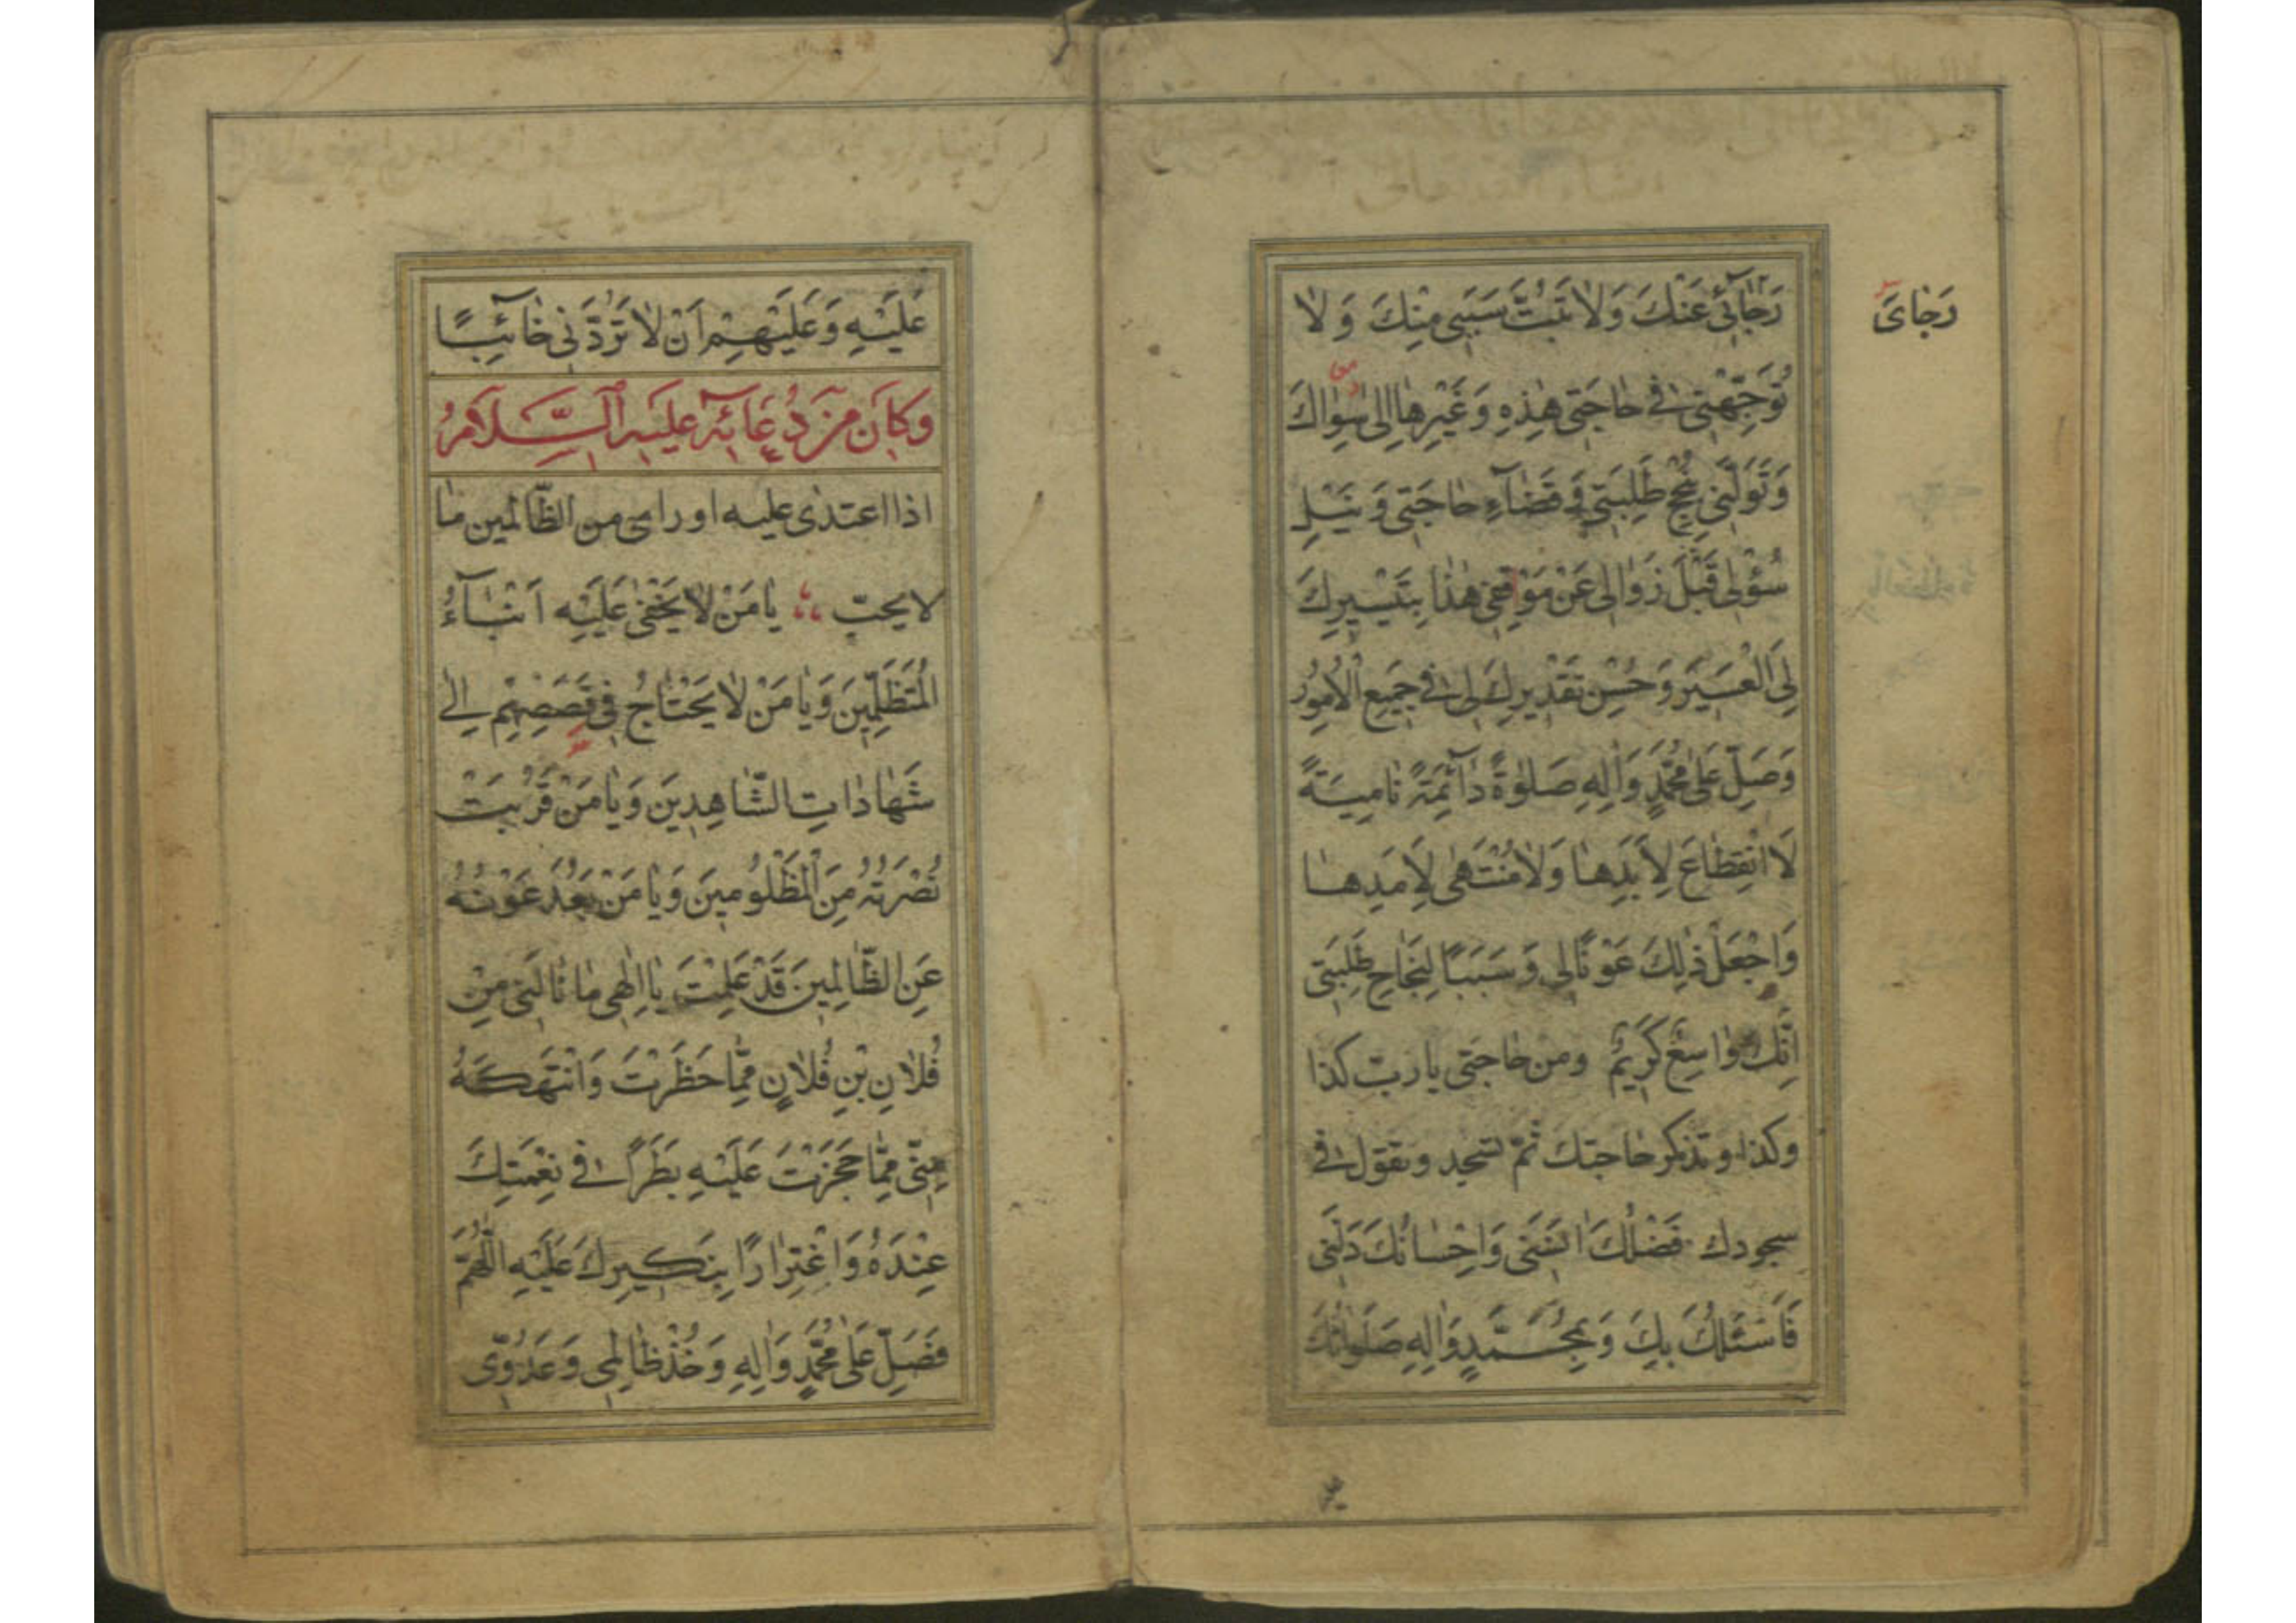 رَجٰائي عَنْكَ وَلاٰ تَبُتَّ سَبَبي مِنْكَ وَ لاٰ
رَجٰایَ
تُوَجِّهْني في حٰاجَتي هٰذِهِ وَ غَيْرِهٰا اِلى سِوٰاكَ
وَتَوَلَّني بِنُجْحِ طَلِبَتي وَ قَضٰآءِ حٰاجَتي وَ نَيْلِ
سُؤْلي قَبْلَ زَوٰالي عَنْ مَوْقِفي هٰذٰا بِتَيْسيرِكَ
لِيَ الْعَسيرَ وَ حُسْنِ تَقْديرِكَ لي في جَميعِ الْاُمُورِ
وَصَلِّ عَلىٰ مُحَمَّدٍ وَاٰلِهِ صَلوٰةً دٰآئِمَةً نٰامِيَةً
لاَ انْقِطٰاعَ لِاَبَدِهٰا وَلاٰ مُنْتَهىٰ لِاَمَدِهٰا
وَاجْعَلْ ذٰلِكَ عَوْنًا لي وَ سَبَبًا لِنَجٰاحِ طَلِبَتي
اِنَّكَ وٰاسِعٌ كَريمٌ ومن حاجتى يا ربّ كذا
وكذا و تذكر حاجتك ثمّ تسجد و تقول فى
سجودك فَضْلُكَ اٰنَسَني وَاِحْسٰانُكَ دَلَّني
فَاَسْئَلُكَ بِكَ وَ بِمُحَمَّدٍ وَاٰلِهِ صَلَوٰاتُكَ
عَلَيْهِ وَ عَلَيْهِمْ اَنْ لاٰ تَرُدَّني خٰآئِبًا
وَ كانَ مِنْ دُعٰآئِه عَلَيْهِ السَّلاٰمُ
اذا اعتدى عليه او راى من الظّالمين ما
لا يحبّ يٰا مَنْ لاٰ يَخْفىٰ عَلَيْهِ اَنْبٰآءُ
الْمُتَظَلِّمينَ وَ يٰا مَنْ لاٰ يَحْتٰاجُ في قَصَصِهِمْ اِلى
شَهٰادٰاتِ الشّٰاهِدينَ وَ يٰا مَنْ قَرُبَتْ
نُصْرَتُهُ مِنَ الْمَظْلُومينَ وَ يٰا مَنْ بَعُدَ عَوْنُهُ
عَنِ الظّٰالِمينَ قَدْ عَلِمْتَ يٰا اِلٰهي مٰا نٰالَني مِنْ
فُلاٰنِ بْنِ فُلاٰنٍ مِمّٰا حَظَرْتَ وَانْتَهَكَهُ
مِنّي مِمّٰا حَجَزْتَ عَلَيْهِ بَطَرًا في نِعْمَتِكَ
عِنْدَهُ وَاغْتِرٰارًا بِنَكيرِكَ عَلَيْهِ اللّٰهُمَّ
فَصَلِّ عَلىٰ مُحَمَّدٍ وَاٰلِهِ وَ خُذْ ظٰالِمي وَ عَدُوّي